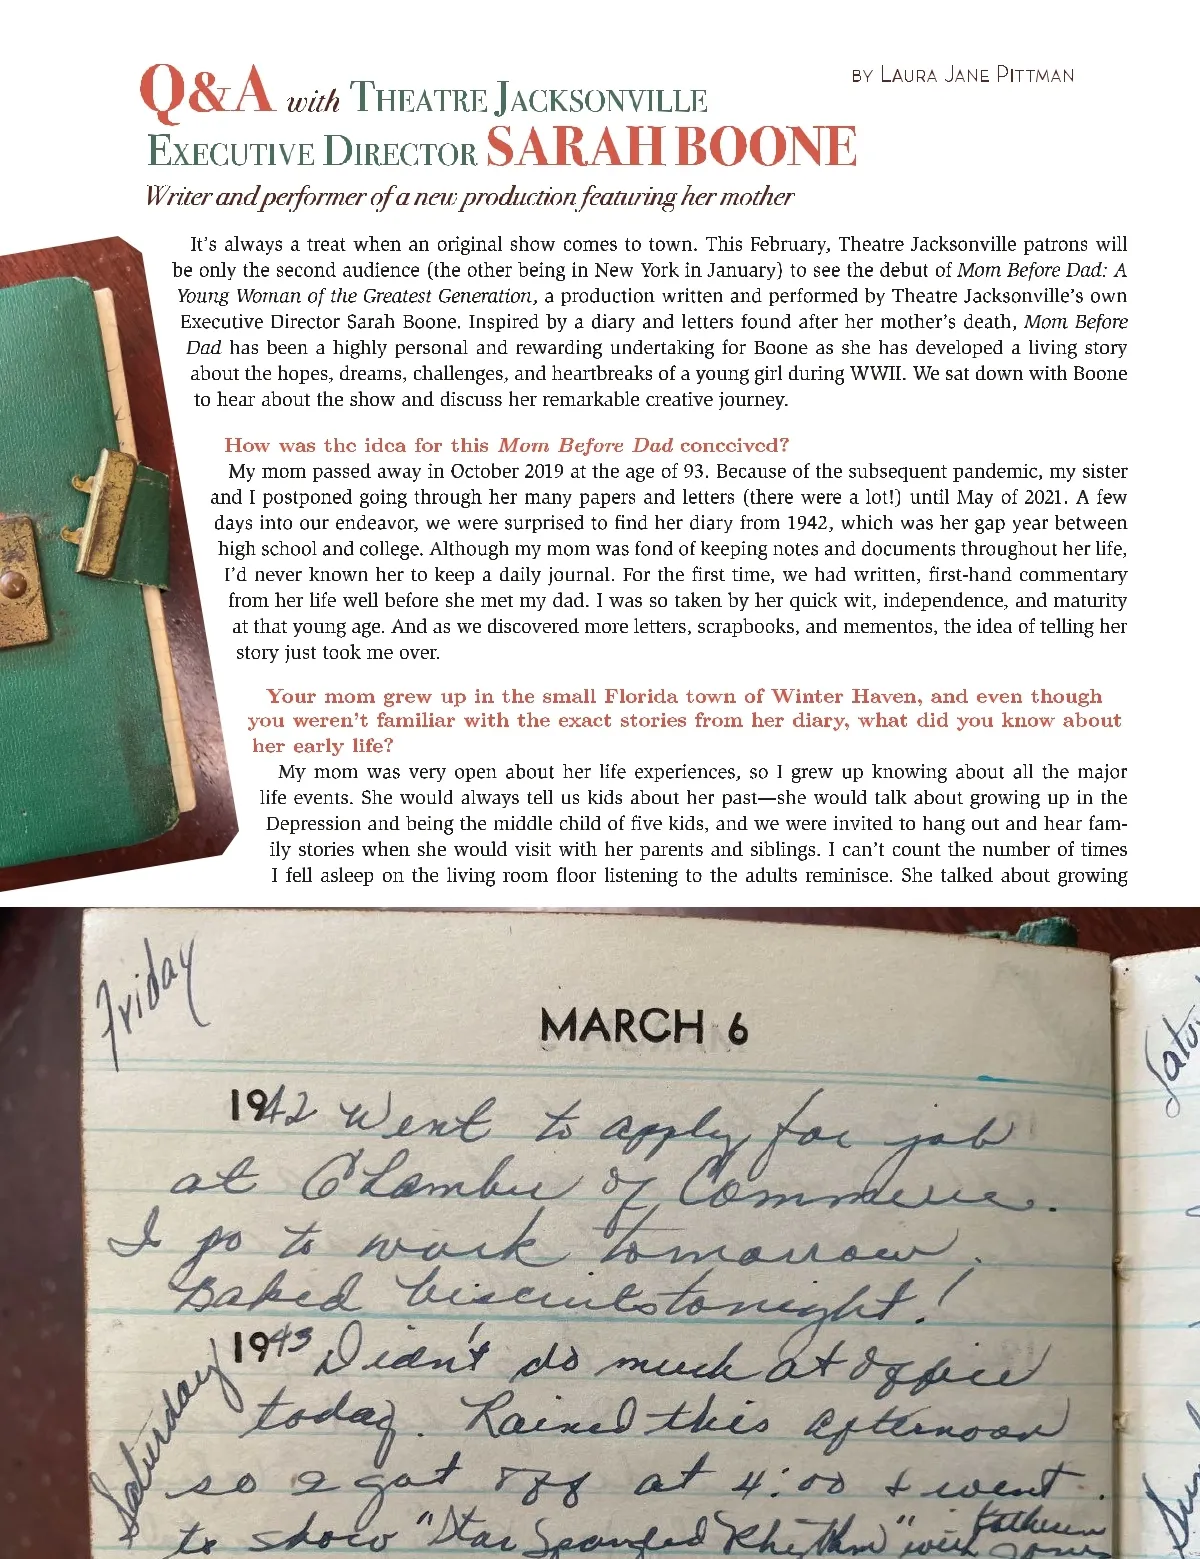 Q&A with THEATRE JACKSONVILLE
BY LAURA JANE PITTMAN
EXECUTIVE DIRECTOR SARAH BOONE
Writer and performer of a new production featuring her mother
It's always a treat when an original show comes to town. This February, Theatre Jacksonville patrons will
be only the second audience (the other being in New York in January) to see the debut of Mom Before Dad: A
Young Woman of the Greatest Generation, a production written and performed by Theatre Jacksonville's own
Executive Director Sarah Boone. Inspired by a diary and letters found after her mother's death, Mom Before
Dad has been a highly personal and rewarding undertaking for Boone as she has developed a living story
about the hopes, dreams, challenges, and heartbreaks of a young girl during WWII. We sat down with Boone
to hear about the show and discuss her remarkable creative journey.
How was the idea for this Mom Before Dad conceived?
My mom passed away in October 2019 at the age of 93. Because of the subsequent pandemic, my sister
and I postponed going through her many papers and letters (there were a lot!) until May of 2021. A few
days into our endeavor, we were surprised to find her diary from 1942, which was her gap year between
high school and college. Although my mom was fond of keeping notes and documents throughout her life,
I'd never known her to keep a daily journal. For the first time, we had written, first-hand commentary
from her life well before she met my dad. I was so taken by her quick wit, independence, and maturity
at that young age. And as we discovered more letters, scrapbooks, and mementos, the idea of telling her
story just took me over.
Your mom grew up in the small Florida town of Winter Haven, and even though
you weren't familiar with the exact stories from her diary, what did you know about
her early life?
My mom was very open about her life experiences, so I grew up knowing about all the major
life events. She would always tell us kids about her past—she would talk about growing up in the
Depression and being the middle child of five kids, and we were invited to hang out and hear fam-
ily stories when she would visit with her parents and siblings. I can't count the number of times
I fell asleep on the living room floor listening to the adults reminisce. She talked about growing
Friday
MARCH 6
1942 Went to apply for job
at Chamber of Commerce.
I go to work tomorrow.
Baked biscuits tonight!
Saturday
1943 Didn't do much at office
today. Rained this afternoon
so I got off at 4:00 & went
to show "Star Spangled Rhythm" with